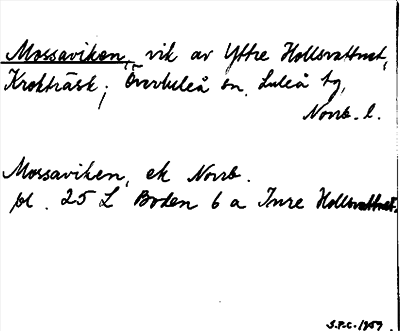 Mossaviken, vik av Yttre Hollsvattnet,
Krokträsk; Överluleå sn, Luleå tg,
Norrb. l.
Mossaviken, ek Norrb.
bl. 25 L Boden 6 a Inre Hollsvattnet.
S.P.C. 1959